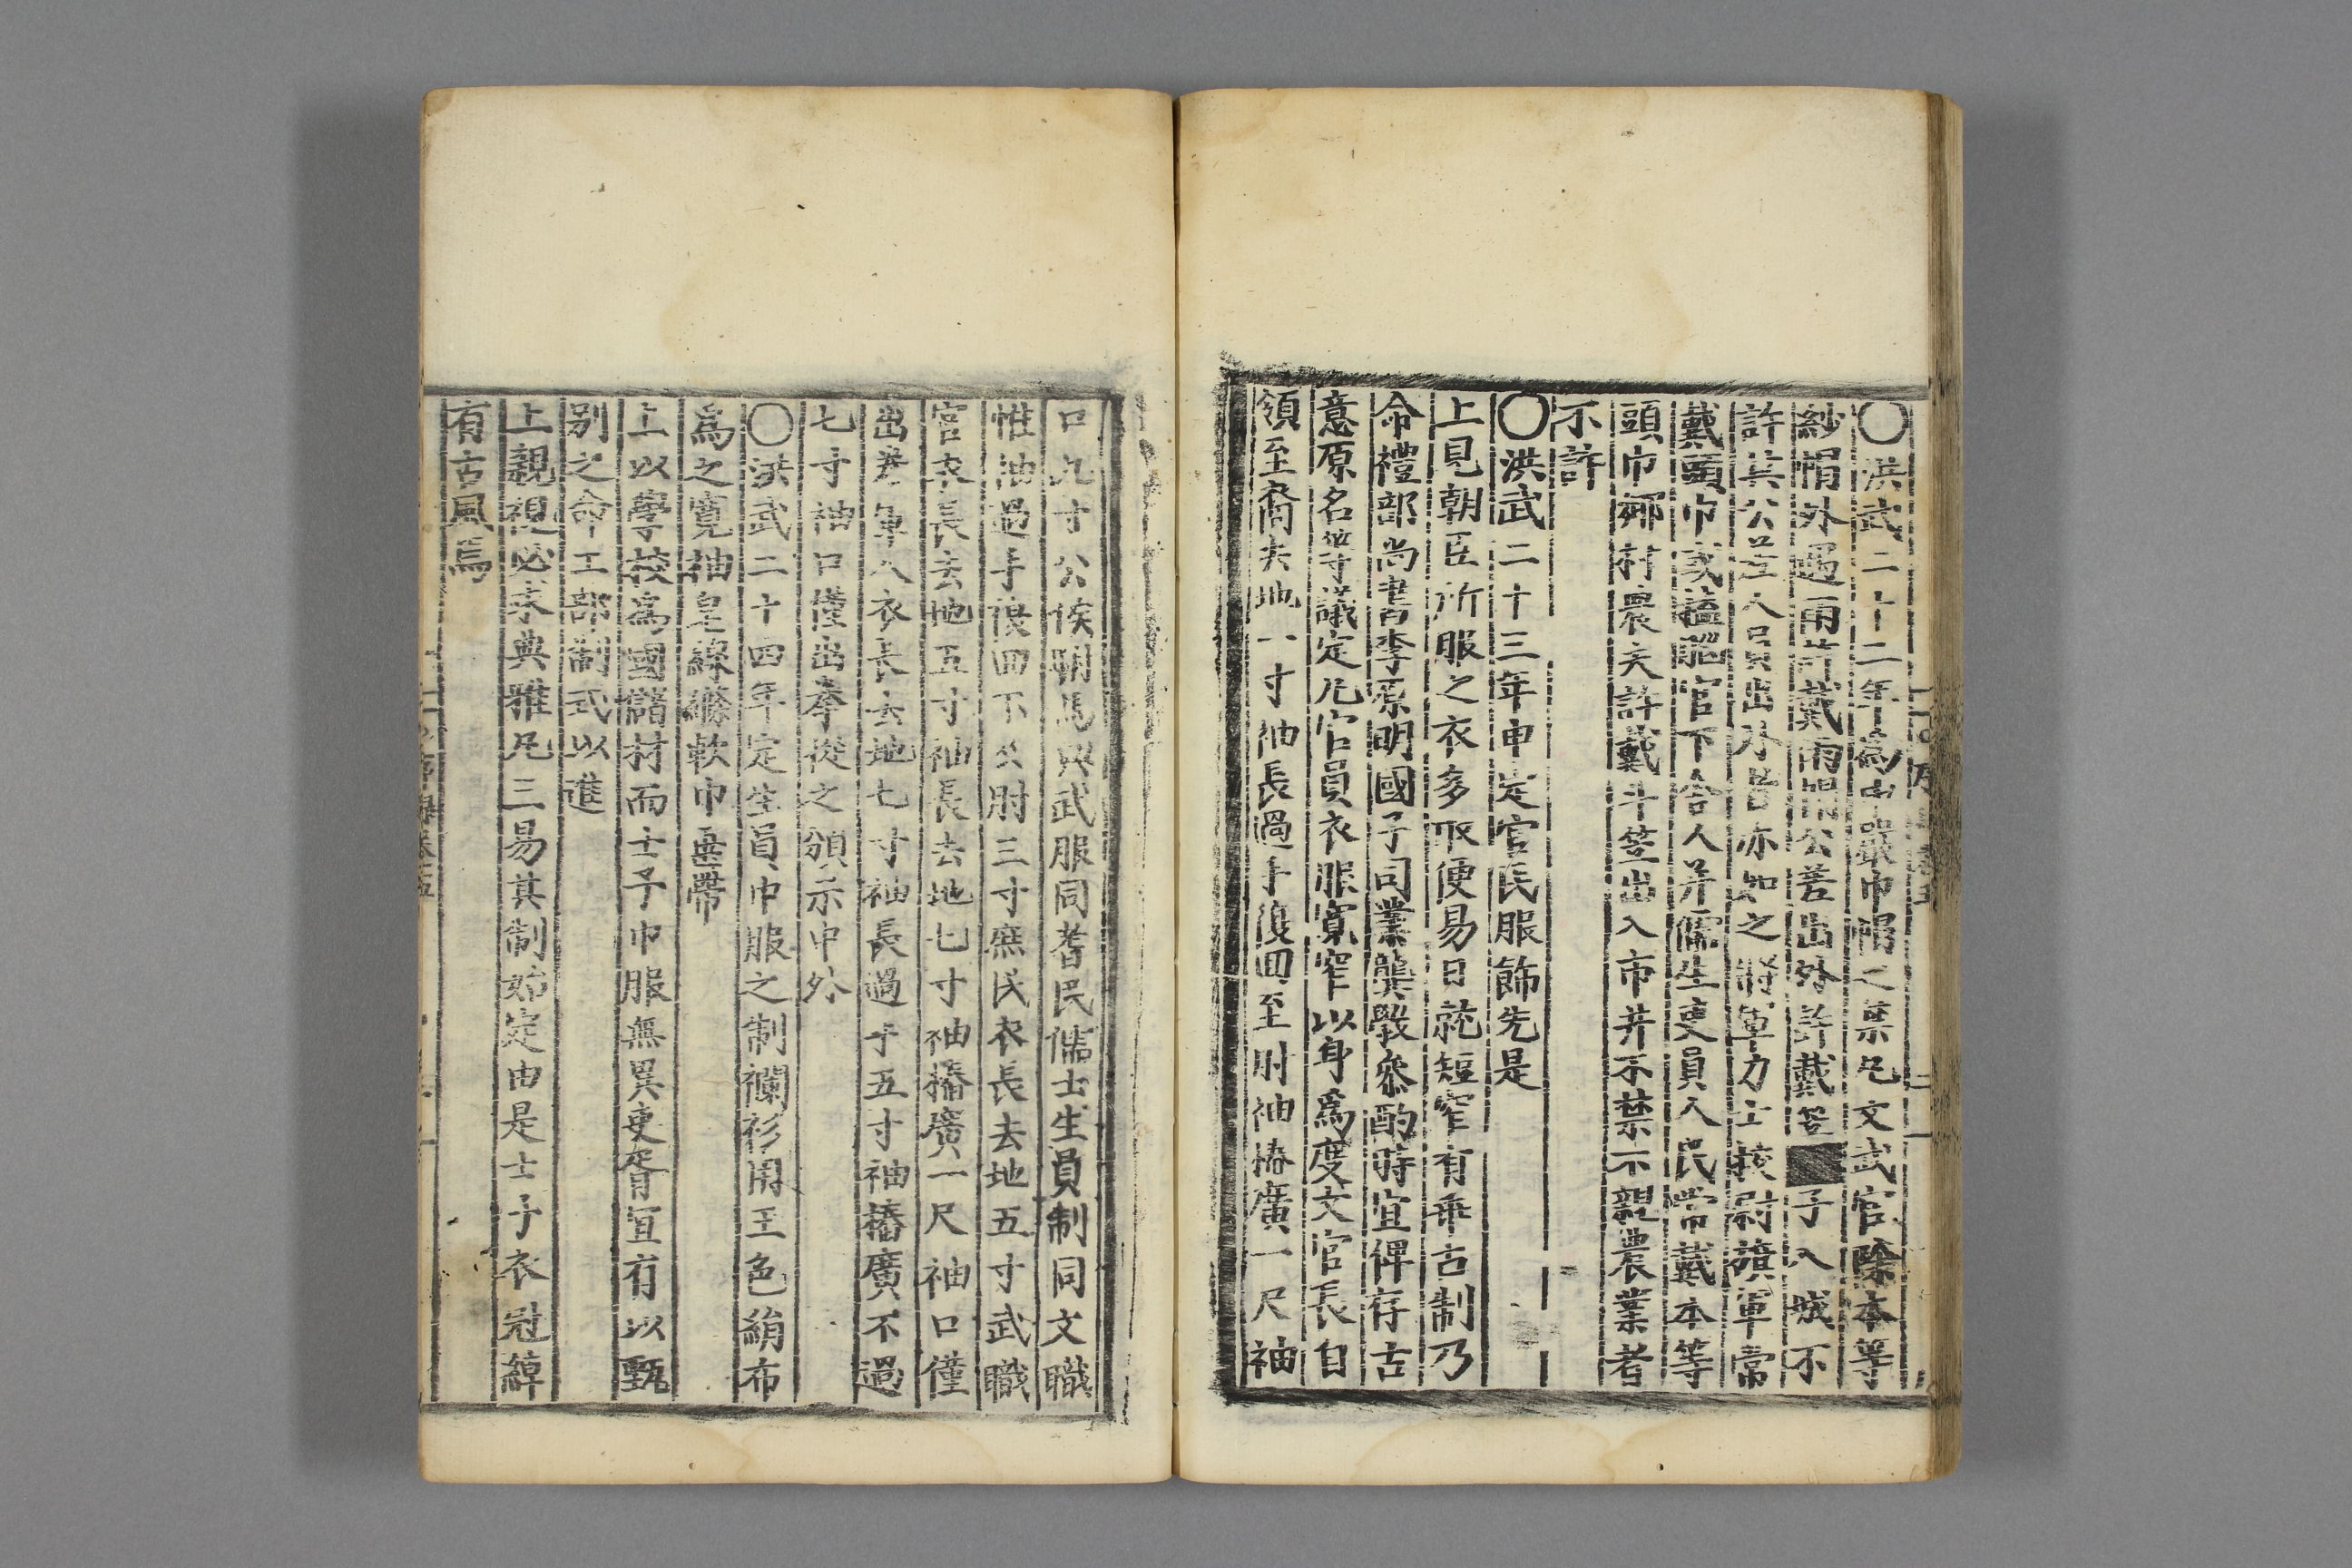 〇洪武二十二年為申嚴巾帽之禁凡文武官除本等
紗帽外遇雨許戴雨帽公差出外許戴笠■子入城不
許其公差人員出外者亦如之將軍力士校尉旗軍常
戴頭巾或𣛮腦官下舍人并儒生吏員人民常戴本等
頭巾鄉村農夫許戴斗笠出入市井不禁不親農業者
不許
〇洪武二十三年申定官民服飾先是
上見朝臣所服之衣多取便易日就短窄有乖古制乃
命禮部尚書李原明國子司業龔斆參酌時宜俾存古
意原名等議定凡官員衣服寬窄以身爲度文官長自
領至裔去地一寸袖長過手復回至肘袖樁廣一尺袖
口九寸公侯駙馬與武服同耆民儒士生員制同文職
惟袖過手復回不及肘三寸庶民衣長去地五寸武職
官衣長去地五寸袖長去地七寸袖樁廣一尺袖口僅
出拳軍人衣長去地七寸袖長過手五寸袖樁廣不過
七寸袖口僅出拳從之頒示中外
〇洪武二十四年定生員巾服之制襴衫用玉色絹布
爲之寬袖皂緣皂縧軟巾垂帶
上以學校爲國儲材而士子巾服無異吏胥宜有以甄
别之命工部制式以進
上親視必求典雅凡三易其制始定由是士子衣冠綽
有古風焉